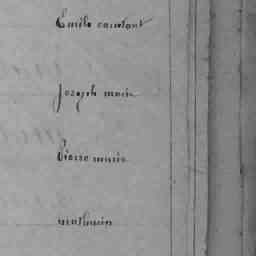 Emile constant
Joseph marie
Pierre marie